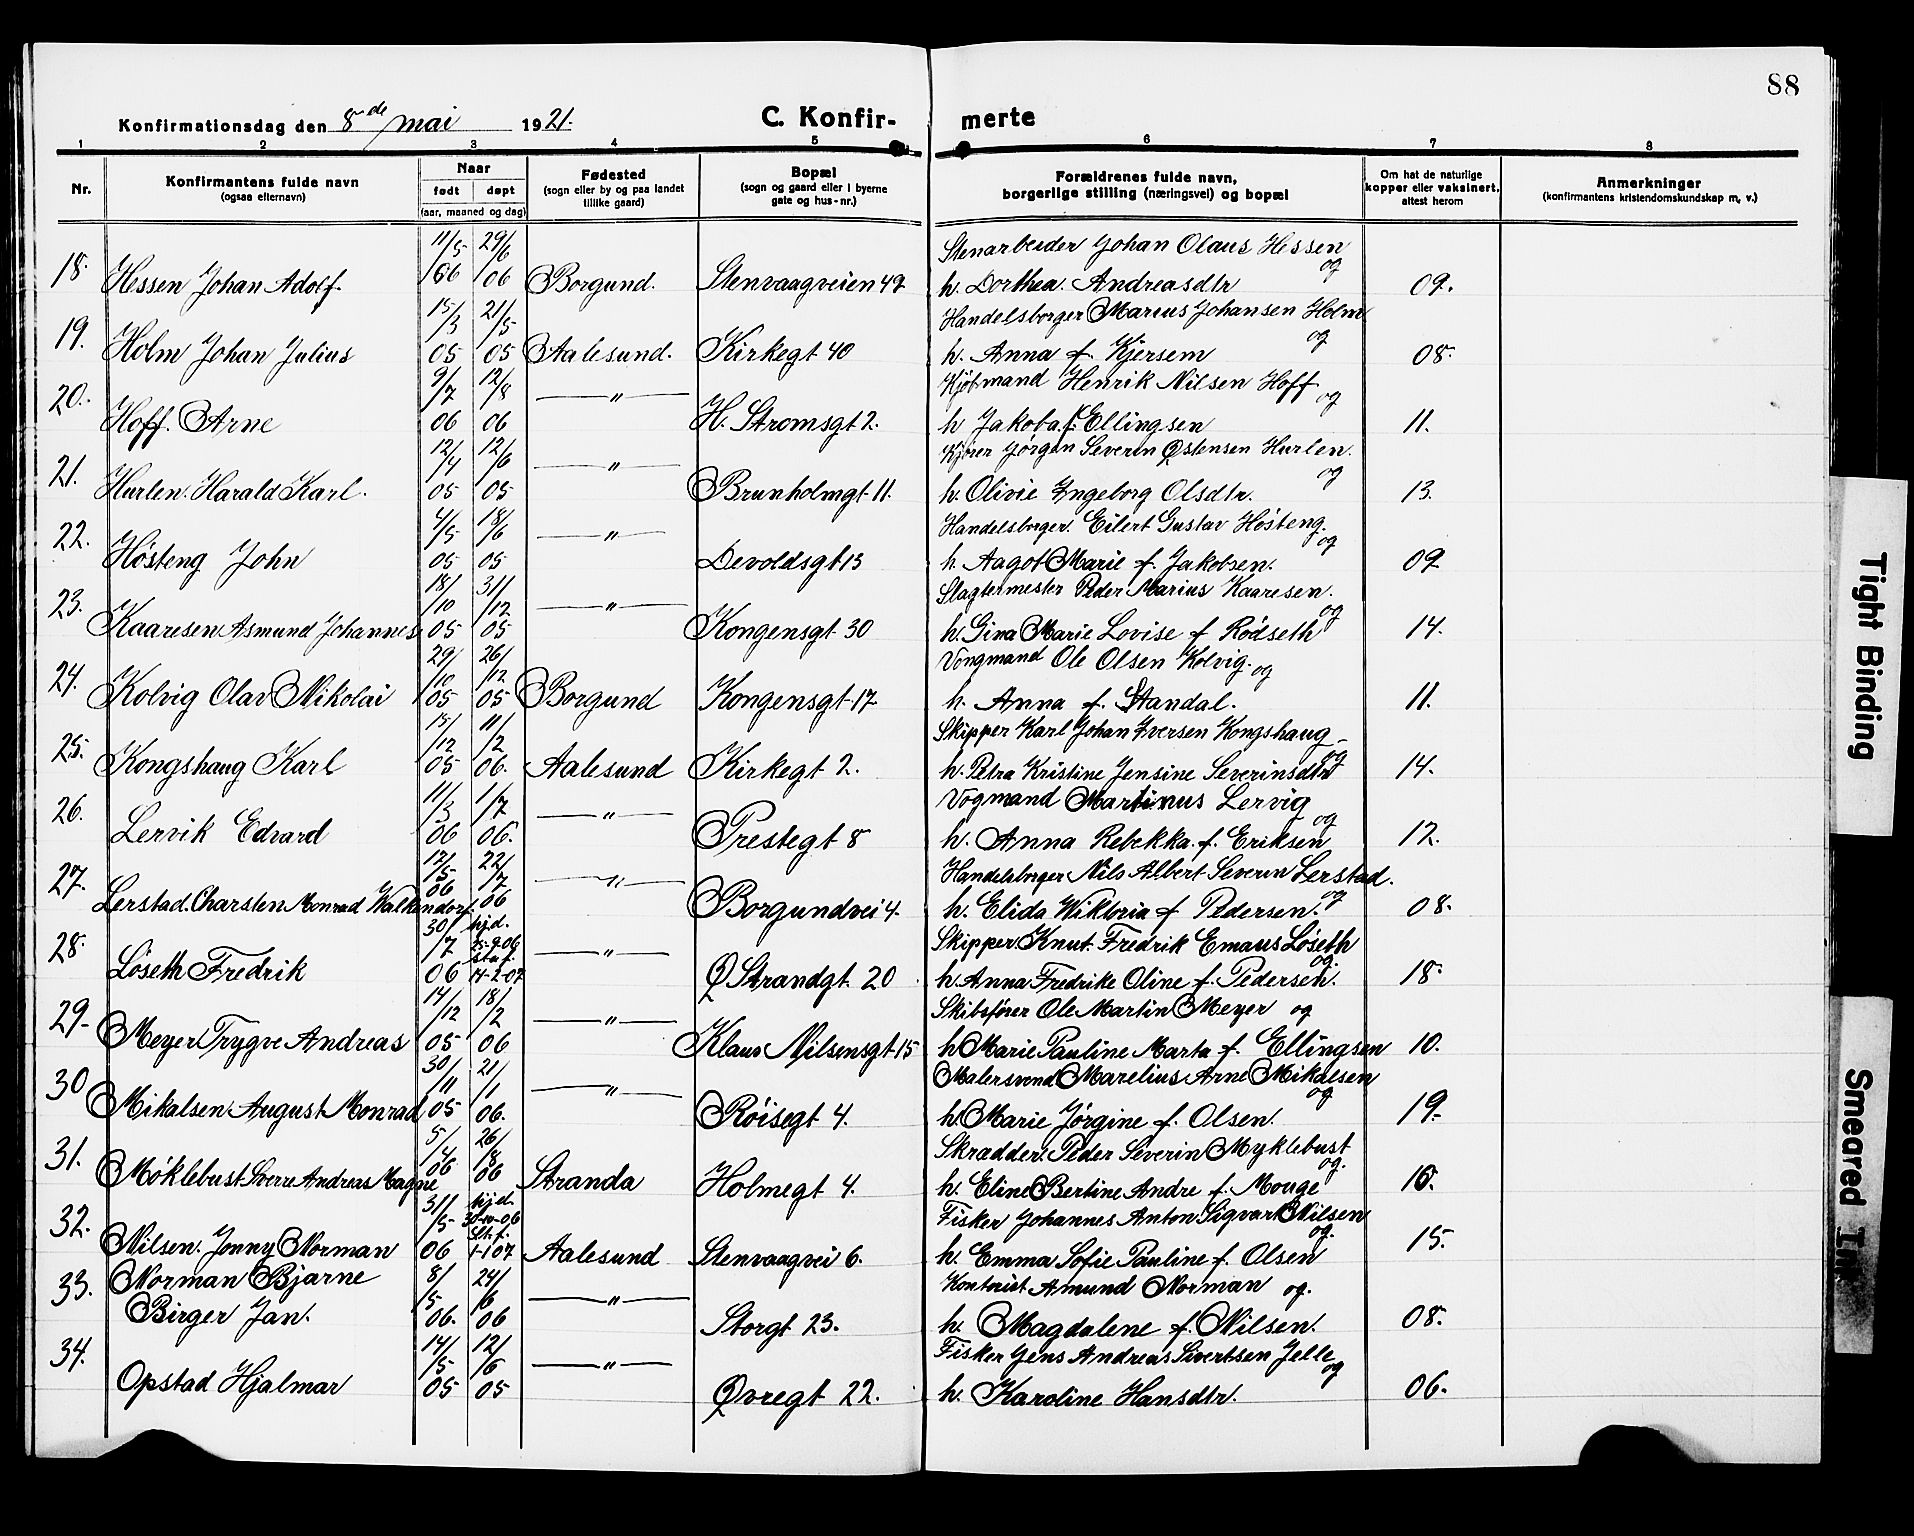 88
Konfirmationsdag den 8de mai 1921. C. Konfir-merte
1 2 3 4 5 6 7 8
Nr. Konfirmantens fulde navn (ogsaa efternavn) Naar født døpt (aar, maaned og dag) Fødested (sogn eller by og paa landet tillike gaard) Bopæl (sogn og gaard eller i byerne gate og hus-nr.) Forældrenes fulde navn, borgerlige stilling (næringsvei) og bopæl Om hat de naturlige kopper eller vaksinert, attest herom Anmerkninger (konfirmantens kristendomskundskap m. v.)
11/5 29/6 Stenarbeider Johan Olaus Hessen og
18. Hessen Johan Adolf. 06 06 Borgund. Stenvaagveien 49 h. Dorthea. Andreasdtr 09.
15/3 21/5 Handelsborger Marius Johansen Holm og
19. Holm Johan Julius 05 05 Aalesund. Kirkegt 40 h. Anna f. Kjersem 08.
9/7 12/8 Kjøbmand Henrik Nilsen Hoff og
20. Hoff. Arne 06 06 —"— H. Strømsgt 2. h Jakoba f. Ellingsen 11.
12/4 12/6 Kjører Jørgen Severin Østensen Hurlen. og
21. Hurlen. Harald Karl. 05 05 —"— Brunholmgt 11. h. Olivie Ingeborg Olsdtr. 13.
4/5 18/6 Handelsborger. Eilert Gustav Høsteng. og
22. Høsteng John 05 05 —"— Devoldsgt 13 h. Aagot Marie f. Jakobsen. 09
18/10 31/12 Slagtermester Peder Marius Kaaresen. og
23. Kaaresen Asmund Johannes 05 05 —"— Kongensgt 30 h. Gina Marie Lovise f Rødseth 14.
29/10 26/12 Vongmand Ole Olsen Kolvig. og
24. Kolvig Olav Nikolai 05 05 Borgund Kongensgt 17 h. Anna f. Standal. 11.
15/12 11/2 Skipper Karl Johan Iversen Kongshaug og
25. Kongshaug Karl 05 06. Aalesund Kirkegt 2. h. Petra Kristine Jensine Severinsdtr 14.
11/3 1/7 Vogmand Martinus Lervig og
26. Lervik Edvard 06 06. —"— Prestegt 8 h. Anna Rebekka. f. Eriksen 12.
17/5 22/7 Handelsborger Nils Albert Severin Lerstad. og
27. Lerstad. Charsten Monrad Walkendorf. 06 06 —"— Borgundvei 4. h. Elida Wiktoria f Pedersen. 08.
30/7 hjd. 25-9-06 Skipper Knut. Fredrik Emaus Løseth og.
28. Løseth Fredrik 06 staf. 14-2-07 —"— Ø Strandgt 20 h. Anna Fredrike Oline f. Pedersen. 18.
14/12 18/2 Skibsfører Ole Martin Meyer og
29. Meyer Trygve Andreas 05 06 —"— Klaus Nilsensgt 15 h Marie Pauline Marta f. Ellingsen 10.
30/11 21/1 Malersvend Marelius Arne Mikalsen og
30 Mikalsen August Monrad 05 06. —"— Røisegt 4. h. Marie Jørgine f. Olsen. 19.
5/4 26/8 Skrædder. Peder Severin Myklebust og.
31. Møklebust Sverre Andreas Magne 06 06 Stranda Holmegt 4. h. Eline Bertine Andre f. Mouge 10.
31/5 hjd. 30-10-06 Fisker Johannes Anton Sigvart Nilsen og.
32. Nilsen. Jonny Norman 06 St. f. 1-1 07 Aalesund Stenvaagvei 6. h. Emma Sofie Pauline f. Olsen 15.
33. Norman Bjarne 8/5 24/6 Kontorist Amund Norman og.
Birger Jan. 06. 06 —"— Storgt 23. h. Magdalene f. Nilsen. 08.
14/5 12/6 Fisker Jens Andreas Sivertsen Jelle og
34. Opstad Hjalmar 05 05 —"— Øvregt 22. h. Karoline Hansdtr. 06.
Tight Binding
Smeared Ink